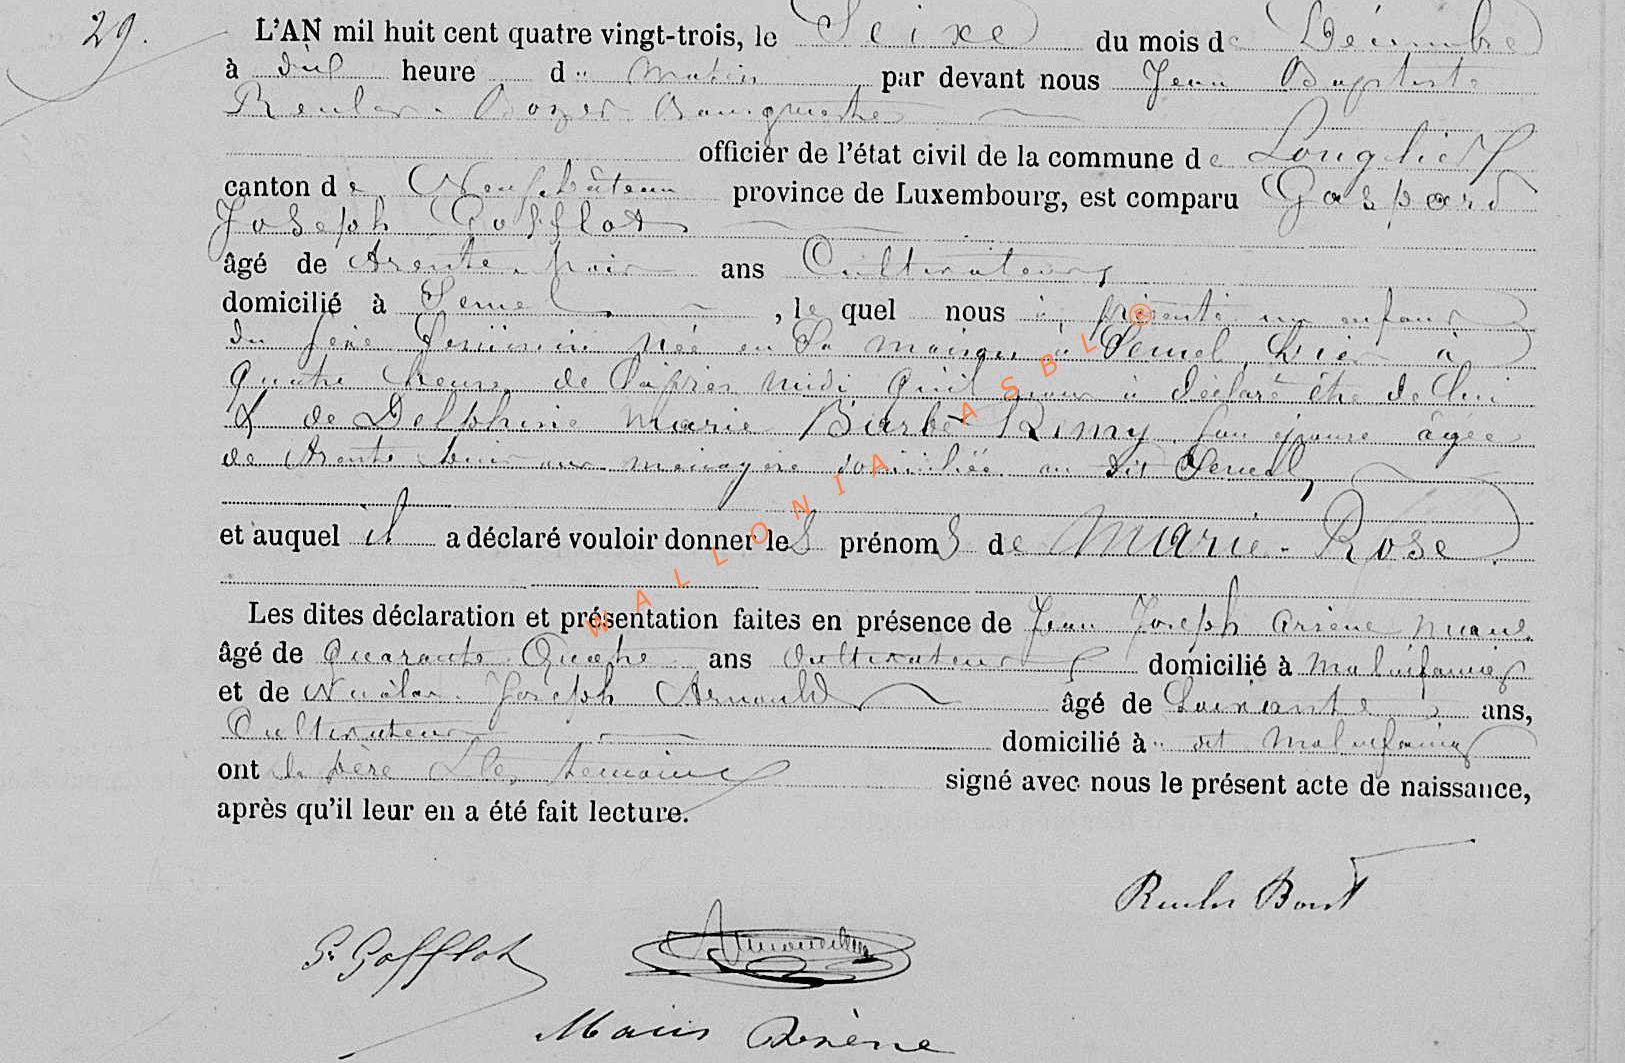 29.
L'AN mil huit cent quatre vingt-trois, le Seize du mois de Décembre
à dix heure du Matin par devant nous Jean Baptiste
Reuler Bourgmestre
officier de l'état civil de la commune de Longlier
canton de Neufchâteau province de Luxembourg, est comparu Gaspard
Joseph Gofflot
âgé de trente huit ans Cultivateur,
domicilié à Semel, le quel nous a présenté un enfant
du sexe féminin née en Sa maison à Semel hier à
quatre heures de l'après midi qu'il nous a déclaré être de lui
& de Delphine Marie Barbe Rémy son épouse âgée
de trente huit ans ménagère domiciliée au dit Semel,
et auquel il a déclaré vouloir donner les prénoms de Marie-Rose
Les dites déclaration et présentation faites en présence de Jean Joseph Arsène
âgé de Quarante Quatre ans Cultivateur domicilié à Molinfaing
et de Nicolas Joseph Arnould âgé de Soixante ans,
Cultivateur domicilié à dit Molinfaing
ont le père & les témoins signé avec nous le présent acte de naissance,
après qu'il leur en a été fait lecture.
G. Gofflot
Arsène
WALLONIA ASBL ®